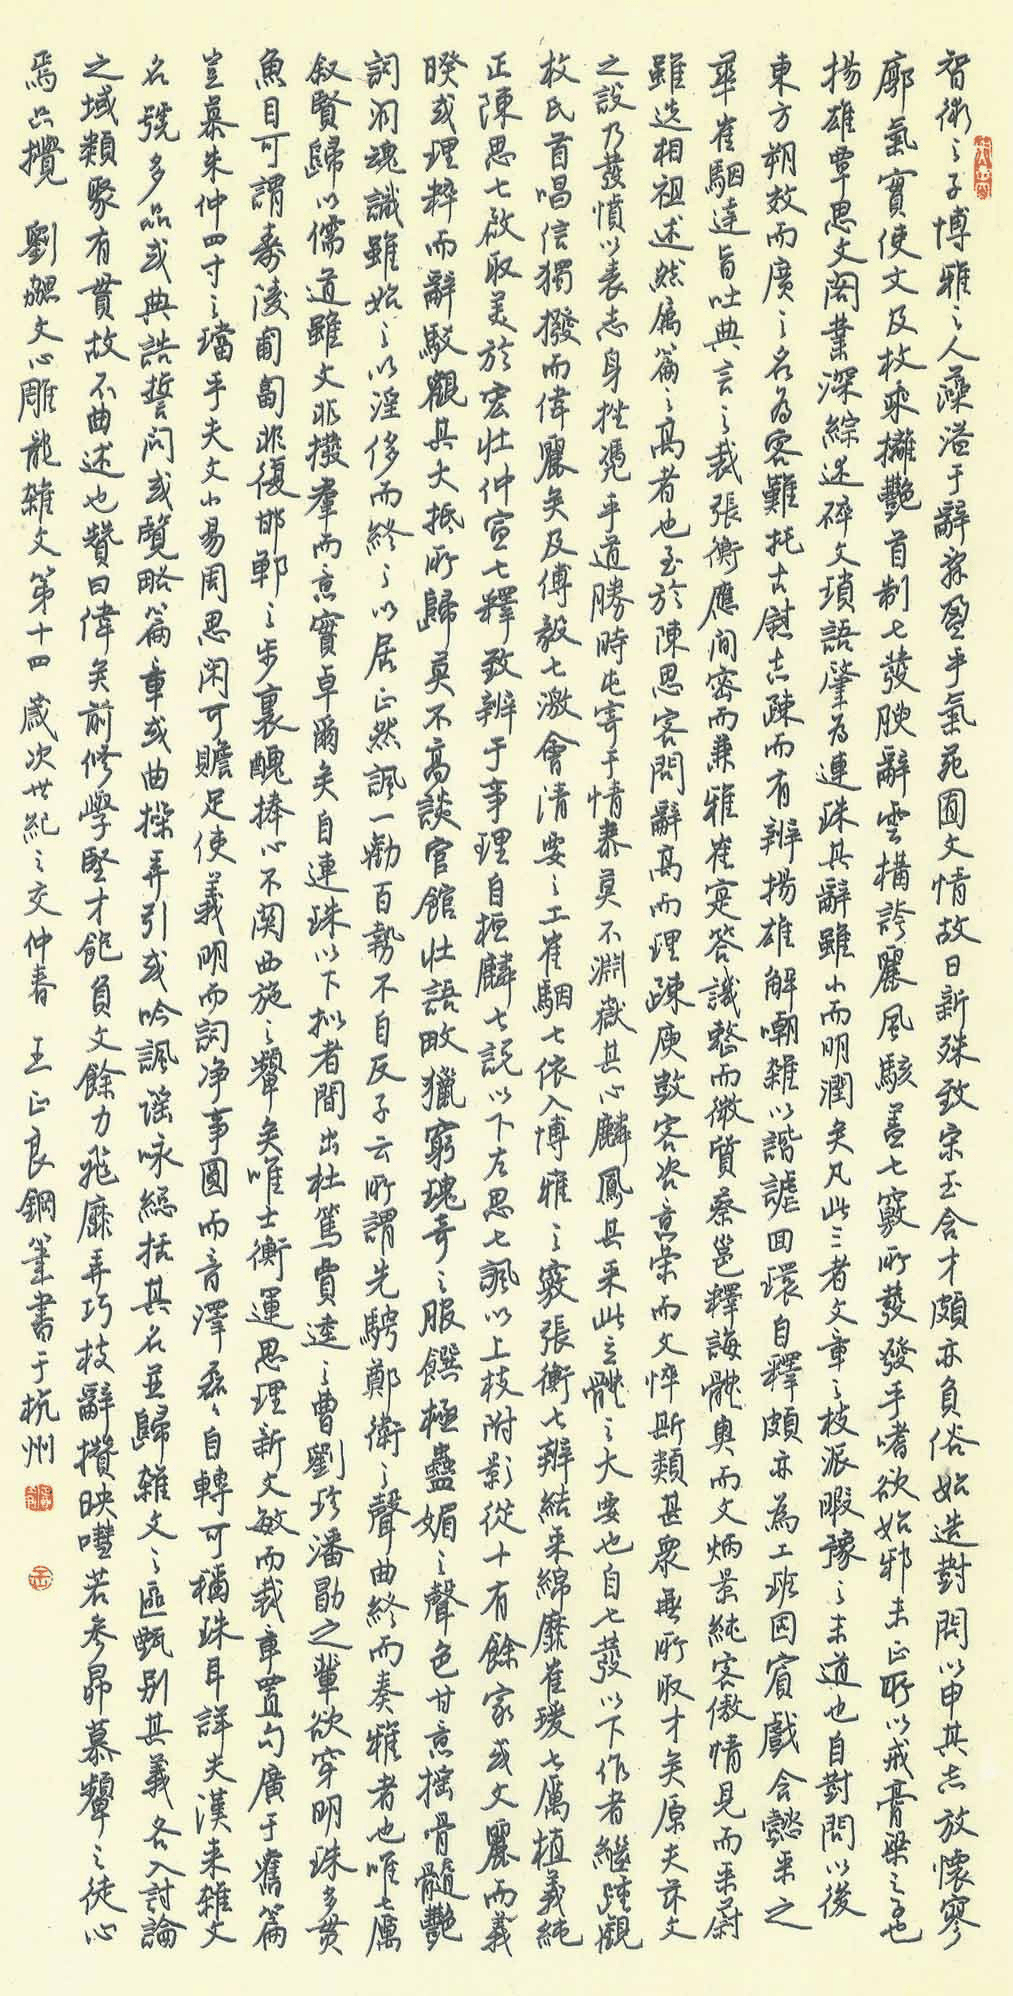 智術之子博雅之人藻溢于辭辯盈乎氣苑囿文情故日新殊致宋玉含才頗亦負俗始造對問以申其志放懷寥
廓氣實使文及枚乘攡艷首制七發腴辭雲構誇麗風駭蓋七竅所發發乎嗜欲始邪末正所以戒膏粱之子也
揚雄覃思文閣業深綜述碎文瑣語肇為連珠其辭雖小而明潤矣凡此三者文章之枝派暇豫之末造也自對問以後
東方朔效而廣之名為客難托古慰志疎而有辨揚雄解嘲雜以諧謔回環自釋頗亦為工班固賓戲含懿采之
華崔駰達旨吐典言之裁張衡應間密而兼雅崔寔答譏整而微質蔡邕釋誨體奧而文炳景純客傲情見而采蔚
雖迭相祖述然屬篇之高者也至於陳思客問辭高而理疎庾敳客咨意榮而文悴斯類甚衆無所取才矣原夫兹文
之設乃發憤以表志身挫憑乎道勝時屯寄于情泰莫不淵嶽其心麟鳳其采此立體之大要也自七發以下作者繼踵觀
枚氏首唱信獨撥而偉麗矣及傅毅七激會清要之工崔駰七依入博雅之竅張衡七辨結采綿靡崔瑗七厲植義純
正陳思七啟取美於宏壯仲宣七釋致辨于事理自桓麟七説以下左思七諷以上枝附影從十有餘家或文麗而義
暌或理粹而辭駁觀其大抵所歸莫不高談宮館壯語畋獵窮瑰奇之服饌極蠱媚之聲色甘意摇骨髓艷
詞洞魂識雖始之以淫侈而終之以居正然諷一勸百勢不自反子云所謂先騁鄭衛之聲曲終而奏雅者也唯七厲
叙賢歸以儒道雖文非拔羣而意實卓爾矣自連珠以下拟者間出杜篤賈逵之曹劉珍潘勖之輩欲穿明珠多贯
魚目可謂壽陵匍匐非復邯鄲之步裏醜捧心不関西施之顰矣唯士衡運思理新文敏而裁章置句廣于舊篇
豈慕朱仲四寸之璫乎夫文小易周思閑可贍足使義明而詞净事圓而音澤磊磊自轉可稱珠耳詳夫漢来雜文
名號多品或典誥誓问或覽略篇章或曲操弄引或吟諷谣咏總括其名並歸雜文之區甄别其義各入討論
之域類聚有貫故不曲述也贊曰偉矣前修學堅才飽負文餘力飛靡弄巧枝辭攢映嘒若參昴慕顰之徒心
焉只攪　劉勰文心雕龍雜文第十四歲次世紀之交仲春　王正良鋼筆書于杭州